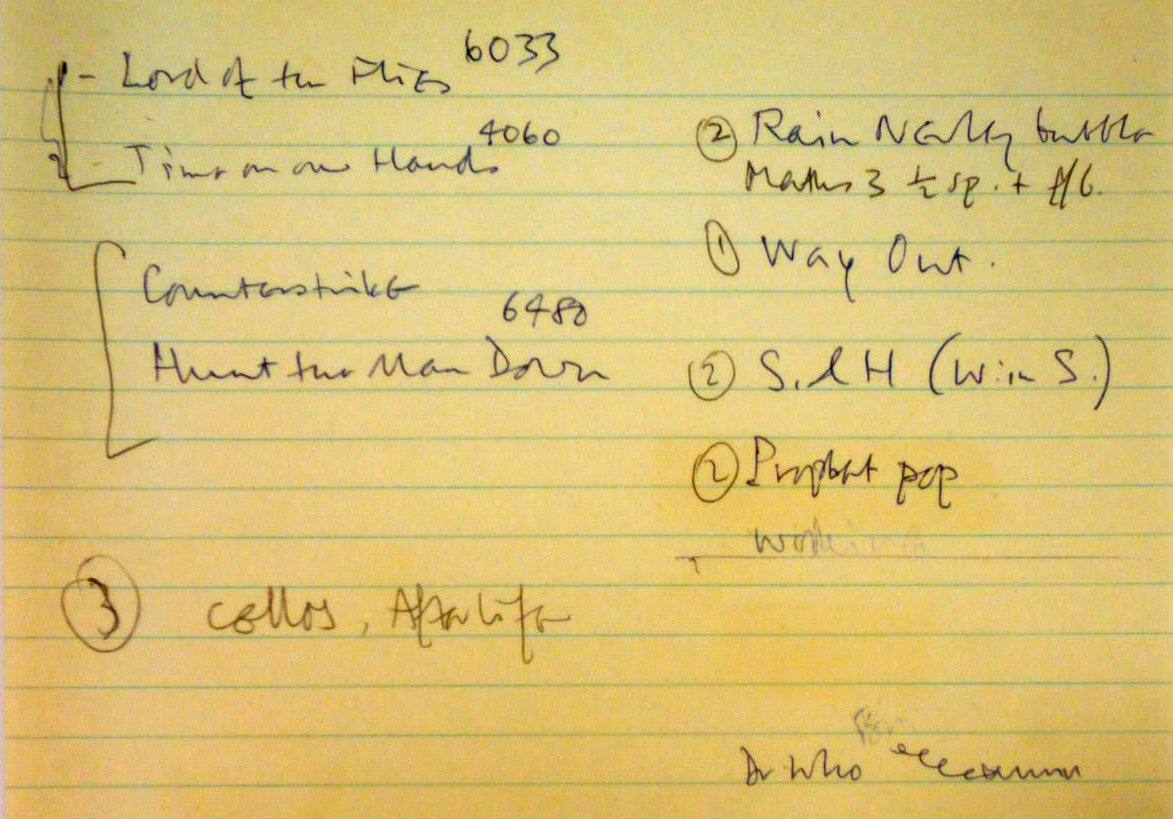 - Lord of the Flies 6033
- Time on our Hands 4060
Counterstrike
Hunt the Man Down 6480
③ Cellos, Afterlife
② Rain Nearly bubble
Maths 3 ½ sp. + f/6.
① Way Out.
② S. & H (Win S.)
② Prophet pop
working
Dr Who